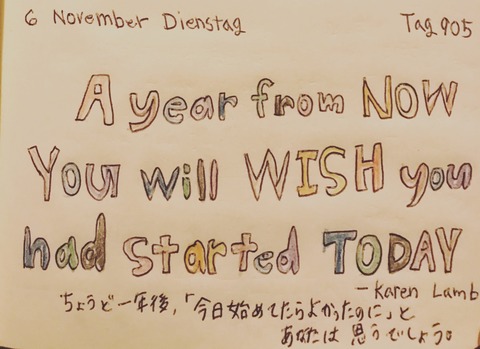 6 November Dienstag Tag 905
A year from NOW
You will WISH you
had started TODAY
-Karen Lamb
ちょうど一年後,「今日始めてたらよかったのに」と
あなたは思うでしょう。